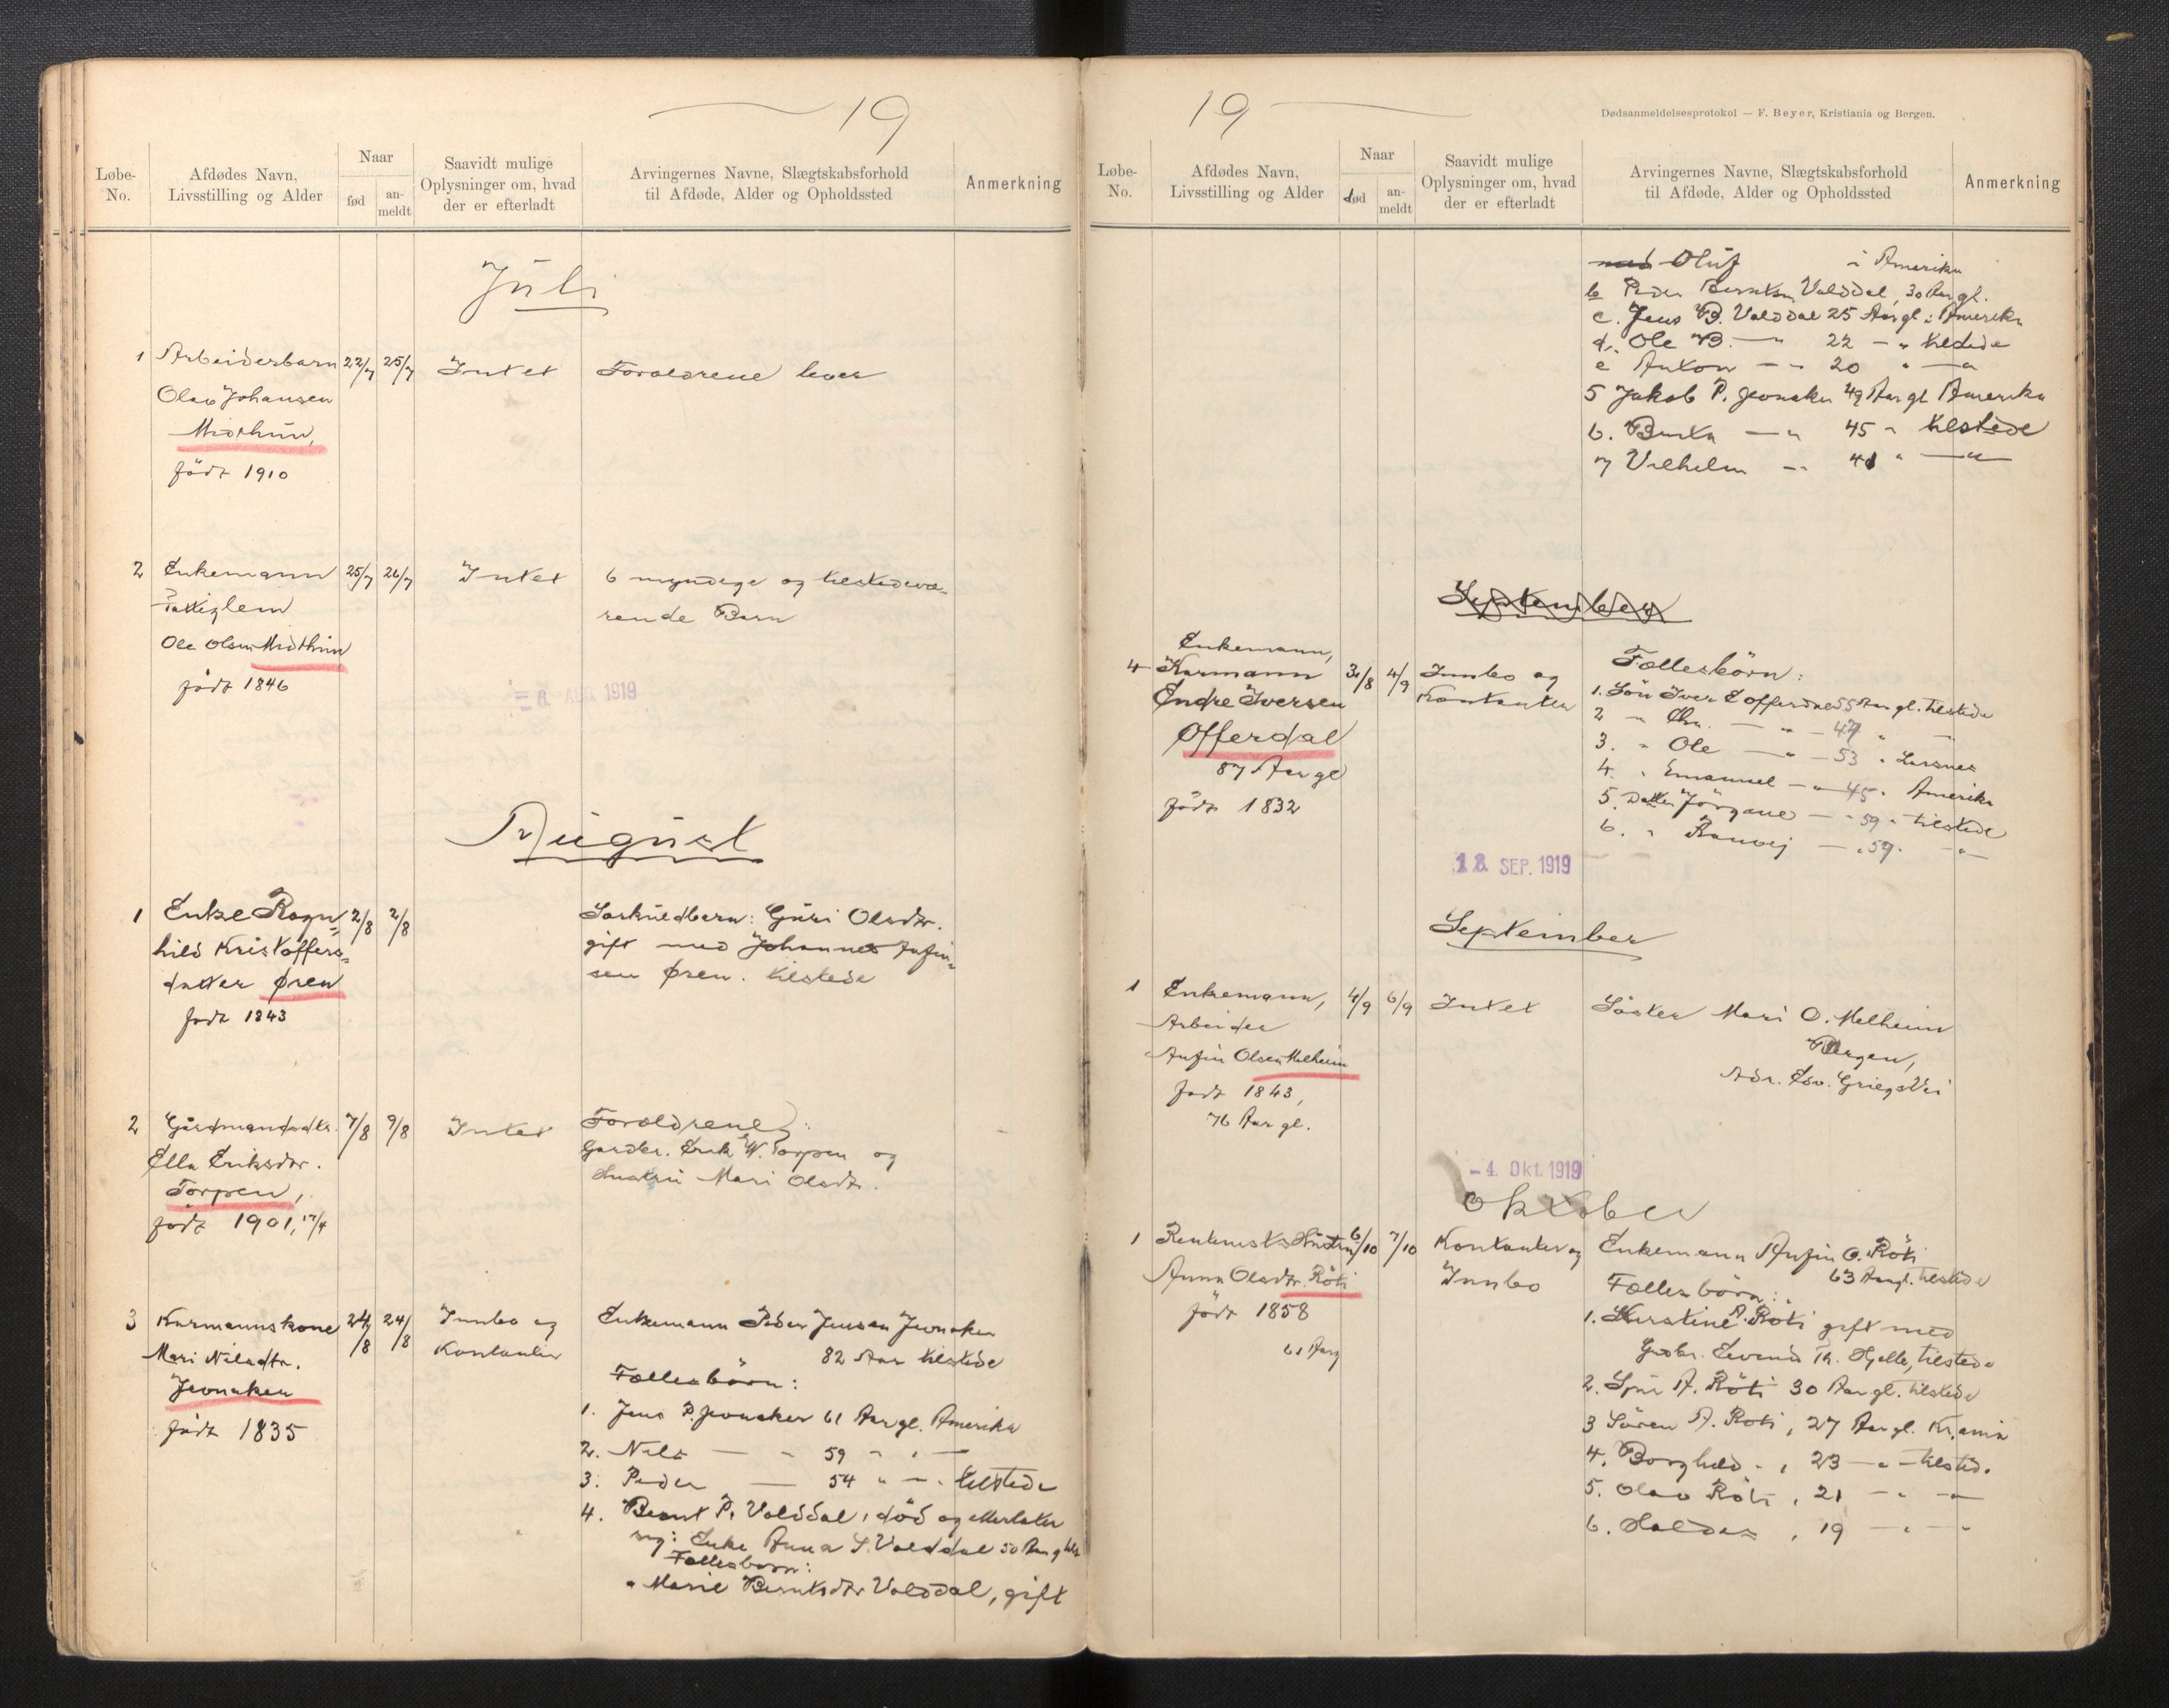 19
Løbe-No.
Afdødes Navn, Livsstilling og Alder
Naar
fød
an-meldt
Saavidt mulige Oplysninger om, hvad der er efterladt
Arvingernes Navne, Slægtskabsforhold til Afdøde, Alder og Opholdssted
Anmerkning
Juli
1 Arbeiderbarn 22/7 25/7 Intet Forældrene lever
Olav Johansen
Midthun,
født 1910
2 Enkemann 25/7 26/7 Intet 6 myndige og tilstedevæ-
Fattiglem rende Børn
Ole Olsen Midthun
født 1846
AUG 1919
August
1 Enke Ragn= 2/8 2/8 Særkuldbarn: Guri Olsdtr.
hild Kristoffers= gift med Johannes Anfin=
datter Øren sen Øren. tilstede
født 1843
2 Gårdmandsdtr. 7/8 9/8 Intet Forældrene:
Ella Eriksdtr. Gardbr. Erik W. Torpen og
Torpen, Hustru Mari Olsdtr.
født 1901, 17/4
3 Kårmannskone 24/8 24/8 Innbo og Enkemann Peder Jensen Jevnaker
Mari Nilsdtr. Kontanter 82 Aar tilstede
Jevnaker Fællesbörn:
født 1835
1. Jens P. Jevnaker 61 Aar gl. Amerika
2. Nils — " 59 " " —
3. Peder — 54 " — " tilstede
4. Bernt P. Valddal, död og efterlater
sig: Enke Anna S. Valddal 50 Aar g
Fællesbørn:
a Marie Berntsdtr Valddal, gift
19
Dødsanmeldelsesprotokol — F. Beyer, Kristiania og Bergen.
Løbe-No.
Afdødes Navn, Livsstilling og Alder
Naar
død
an-meldt
Saavidt mulige Oplysninger om, hvad der er efterladt
Arvingernes Navne, Slægtskabsforhold til Afdøde, Alder og Opholdssted
Anmerkning
med Oluf i Amerika
b Peder Berntsen Valddal, 30 Aar gl.
c. Jens B. Valddal 25 Aar gl i Amerika
d. Ole B. — " 22 — " tilstede
e Anton — " 20 " — "
5 Jakob P. Jevnaker 49 Aar gl Amerika
6. Berta — " 45 " tilstede
7 Vilhelm — " 41 " — "
September
Enkemann,
4 Kårmann 31/8 4/9 Innbo og Fællesbörn:
Endre Iversen Kontanter 1. Sön Iver E Offerdal 55 Aar gl. tilstede
Offerdal 2 " — " — 47 " "
87 Aar gl 3. " Ole — " — 53 "
født 1832 4. " Emanuel — " 45 " Amerika
5. Datter Jörgine — " 59 " tilstede
6. " Ranvei — " 59. — "
18. SEP. 1919
September
1 Enkemann, 4/9 6/9 Intet Söster Mari O. Melheim
Arbeider Bergen,
Anfin Olsen Melheim Adr. Edv. Griegs Vei
født 1843,
76 Aar gl.
-4. Okt. 1919
Oktober
1 Hustru 6/10 7/10 Kontanter og Enkemann Anfin O. Röti
Anna Olsdtr. Röti Innbo 63 Aar gl. tilstede
født 1858 Fællesbörn:
61 Aar g
1. Kirstine A. Röti gift med
Gardbr. Eevind Th. Hjelle, tilstede
2. A. Röti 30 Aar gl. tilstede
3 Sören A. Röti, 27 Aar gl. Kr.ania
4. Borghild " , 23 — " — tilsted.
5. Olav Röti , 21 — " — "
6. Haldor , 19 — " — "